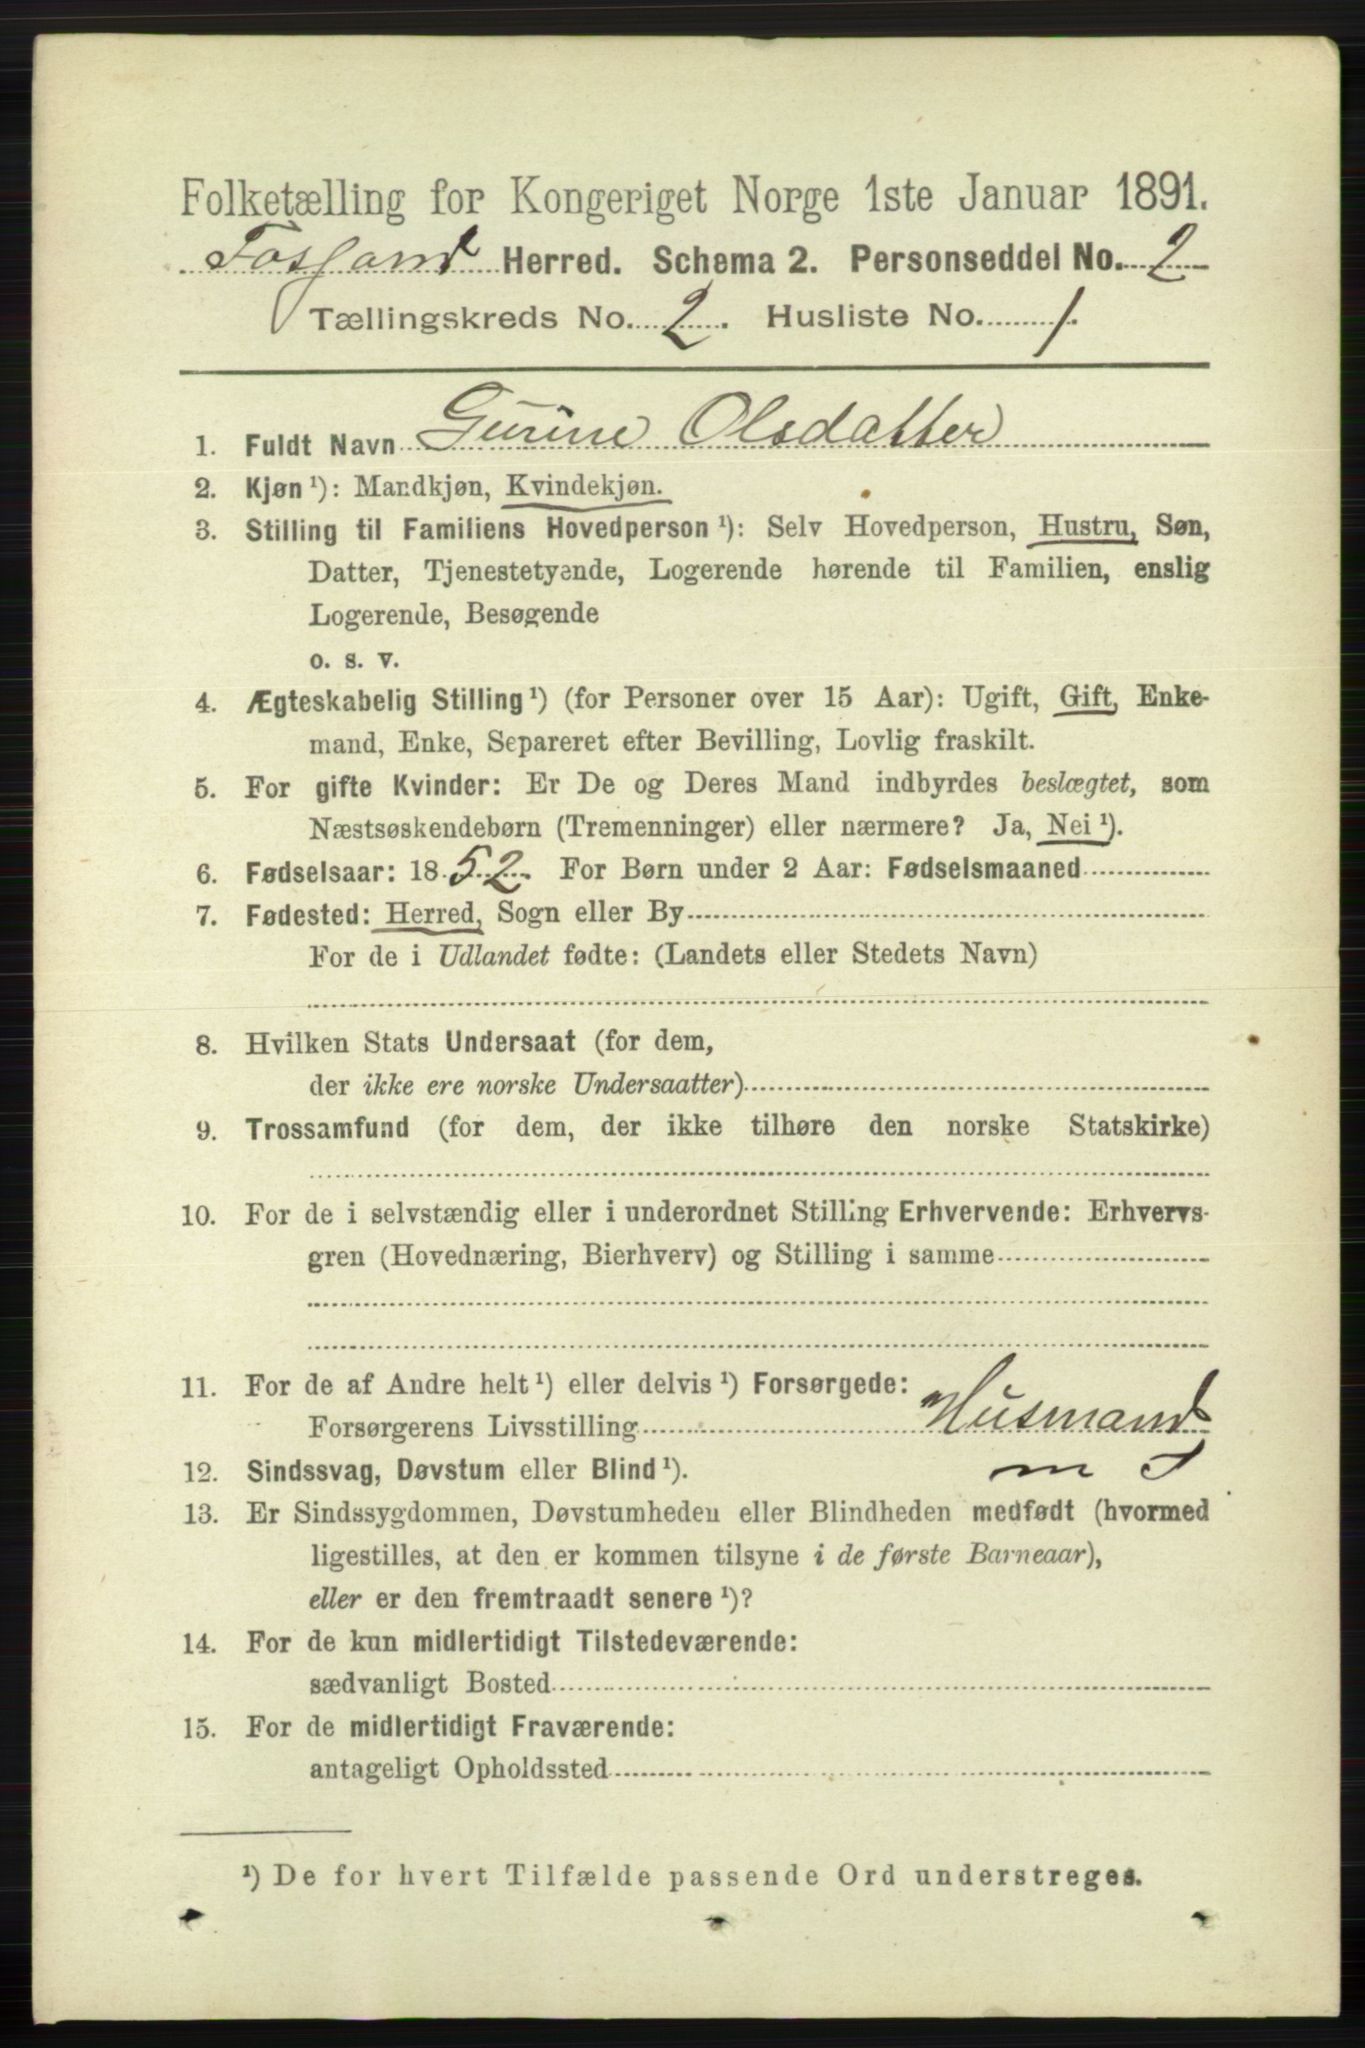 Folketælling for Kongeriget Norge 1ste Januar 1891.
Fosland Herred. Schema 2. Personseddel No. 2
Tællingskreds No. 2. Husliste No. 1.
1. Fuldt Navn Gurine Olsdatter
2. Kjøn ¹): Mandkjøn, Kvindekjøn.
3. Stilling til Familiens Hovedperson ¹): Selv Hovedperson, Hustru, Søn,
Datter, Tjenestetyende, Logerende hørende til Familien, enslig
Logerende, Besøgende
o. s. v.
4. Ægteskabelig Stilling ¹) (for Personer over 15 Aar): Ugift, Gift, Enke-
mand, Enke, Separeret efter Bevilling, Lovlig fraskilt.
5. For gifte Kvinder: Er De og Deres Mand indbyrdes beslægtet, som
Næstsøskendebørn (Tremenninger) eller nærmere? Ja, Nei ¹).
6. Fødselsaar: 1852 For Børn under 2 Aar: Fødselsmaaned
7. Fødested: Herred, Sogn eller By
For de i Udlandet fødte: (Landets eller Stedets Navn)
8. Hvilken Stats Undersaat (for dem,
der ikke ere norske Undersaatter)
9. Trossamfund (for dem, der ikke tilhøre den norske Statskirke)
10. For de i selvstændig eller i underordnet Stilling Erhvervende: Erhvervs-
gren (Hovednæring, Bierhverv) og Stilling i samme
11. For de af Andre helt ¹) eller delvis ¹) Forsørgede:
Forsørgerens Livsstilling Husmand
12. Sindssvag, Døvstum eller Blind ¹). m J
13. Er Sindssygdommen, Døvstumheden eller Blindheden medfødt (hvormed
ligestilles, at den er kommen tilsyne i de første Barneaar),
eller er den fremtraadt senere ¹)?
14. For de kun midlertidigt Tilstedeværende:
sædvanligt Bosted
15. For de midlertidigt Fraværende:
antageligt Opholdssted
¹) De for hvert Tilfælde passende Ord understreges.